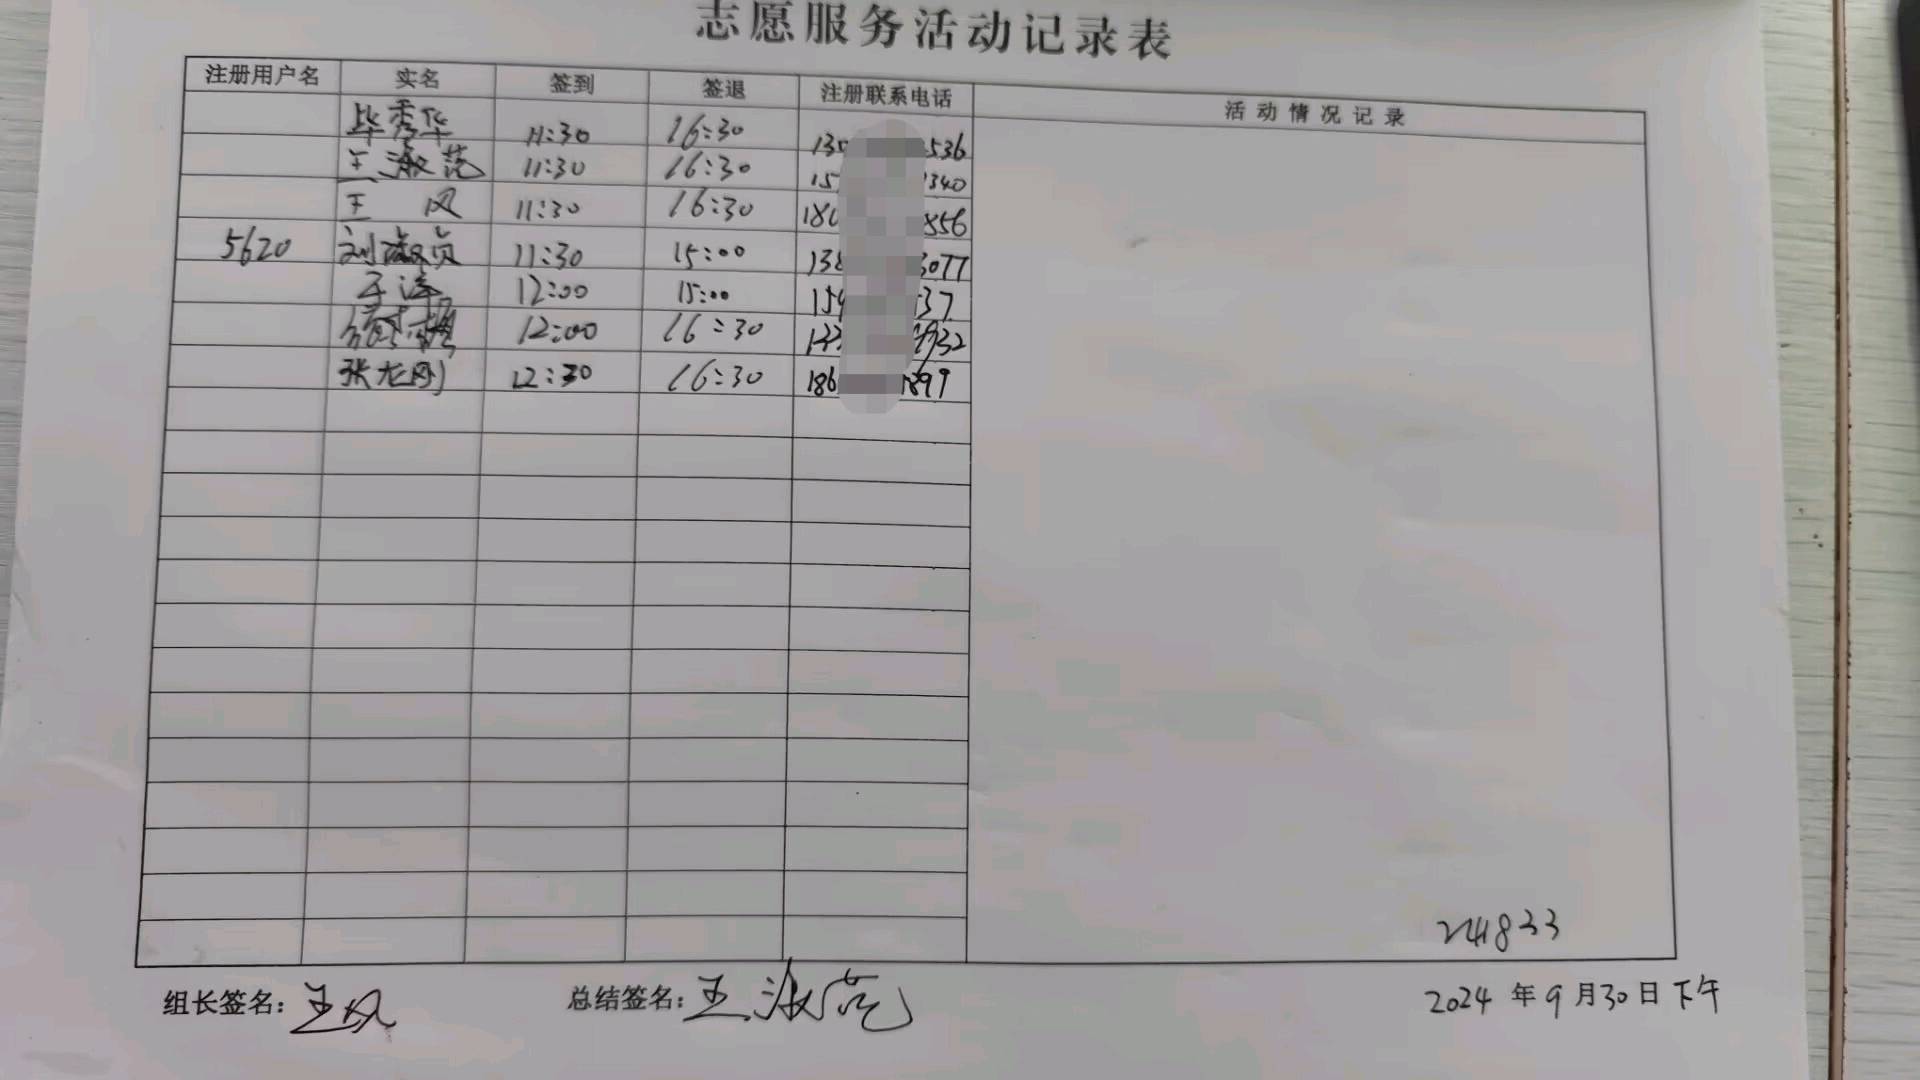 志愿服务活动记录表
注册用户名 实名 签到 签退 注册联系电话 活动情况记录
毕秀华 11:30 16:30 536
王淑范 11:30 16:30 340
王风 11:30 16:30 180 856
5620 刘淑贞 11:30 15:00 138 3077
12:00 15:00 159 37
12:00 16:30 932
张龙刚 12:30 16:30 186 899
244833
组长签名：王风 总结签名：王淑范 2024年9月30日下午